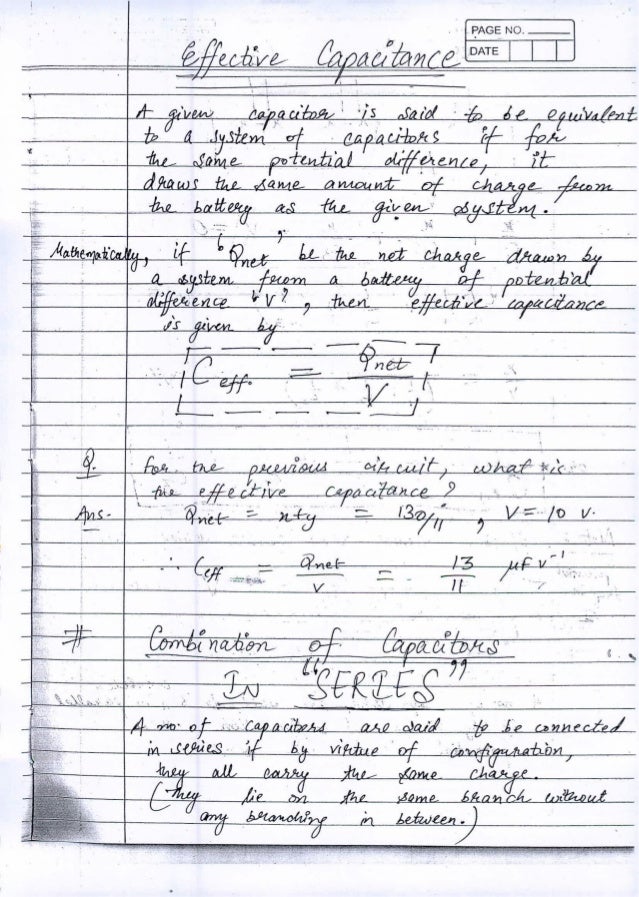 PAGE NO.
DATE
Effective Capacitance
A given capacitor is said to be equivalent
to a system of capacitors if for
the same potential difference, it
draws the same amount of charge from
the battery as the given system.
Mathematically, if 'Qnet' be the net charge drawn by
a system from a battery of potential
difference 'V', then effective capacitance
is given by
Ceff. = Qnet / V
Q. For the previous circuit, what is
the effective capacitance?
Ans- Qnet = x+y = 130/11, V = 10 v.
∴ Ceff = Qnet / V = 13 / 11 μf v⁻¹
# Combination of Capacitors
IN "SERIES"
A no. of capacitors are said to be connected
in series if by virtue of configuration,
they all carry the same charge.
(They lie on the same branch without
any branching in between.)